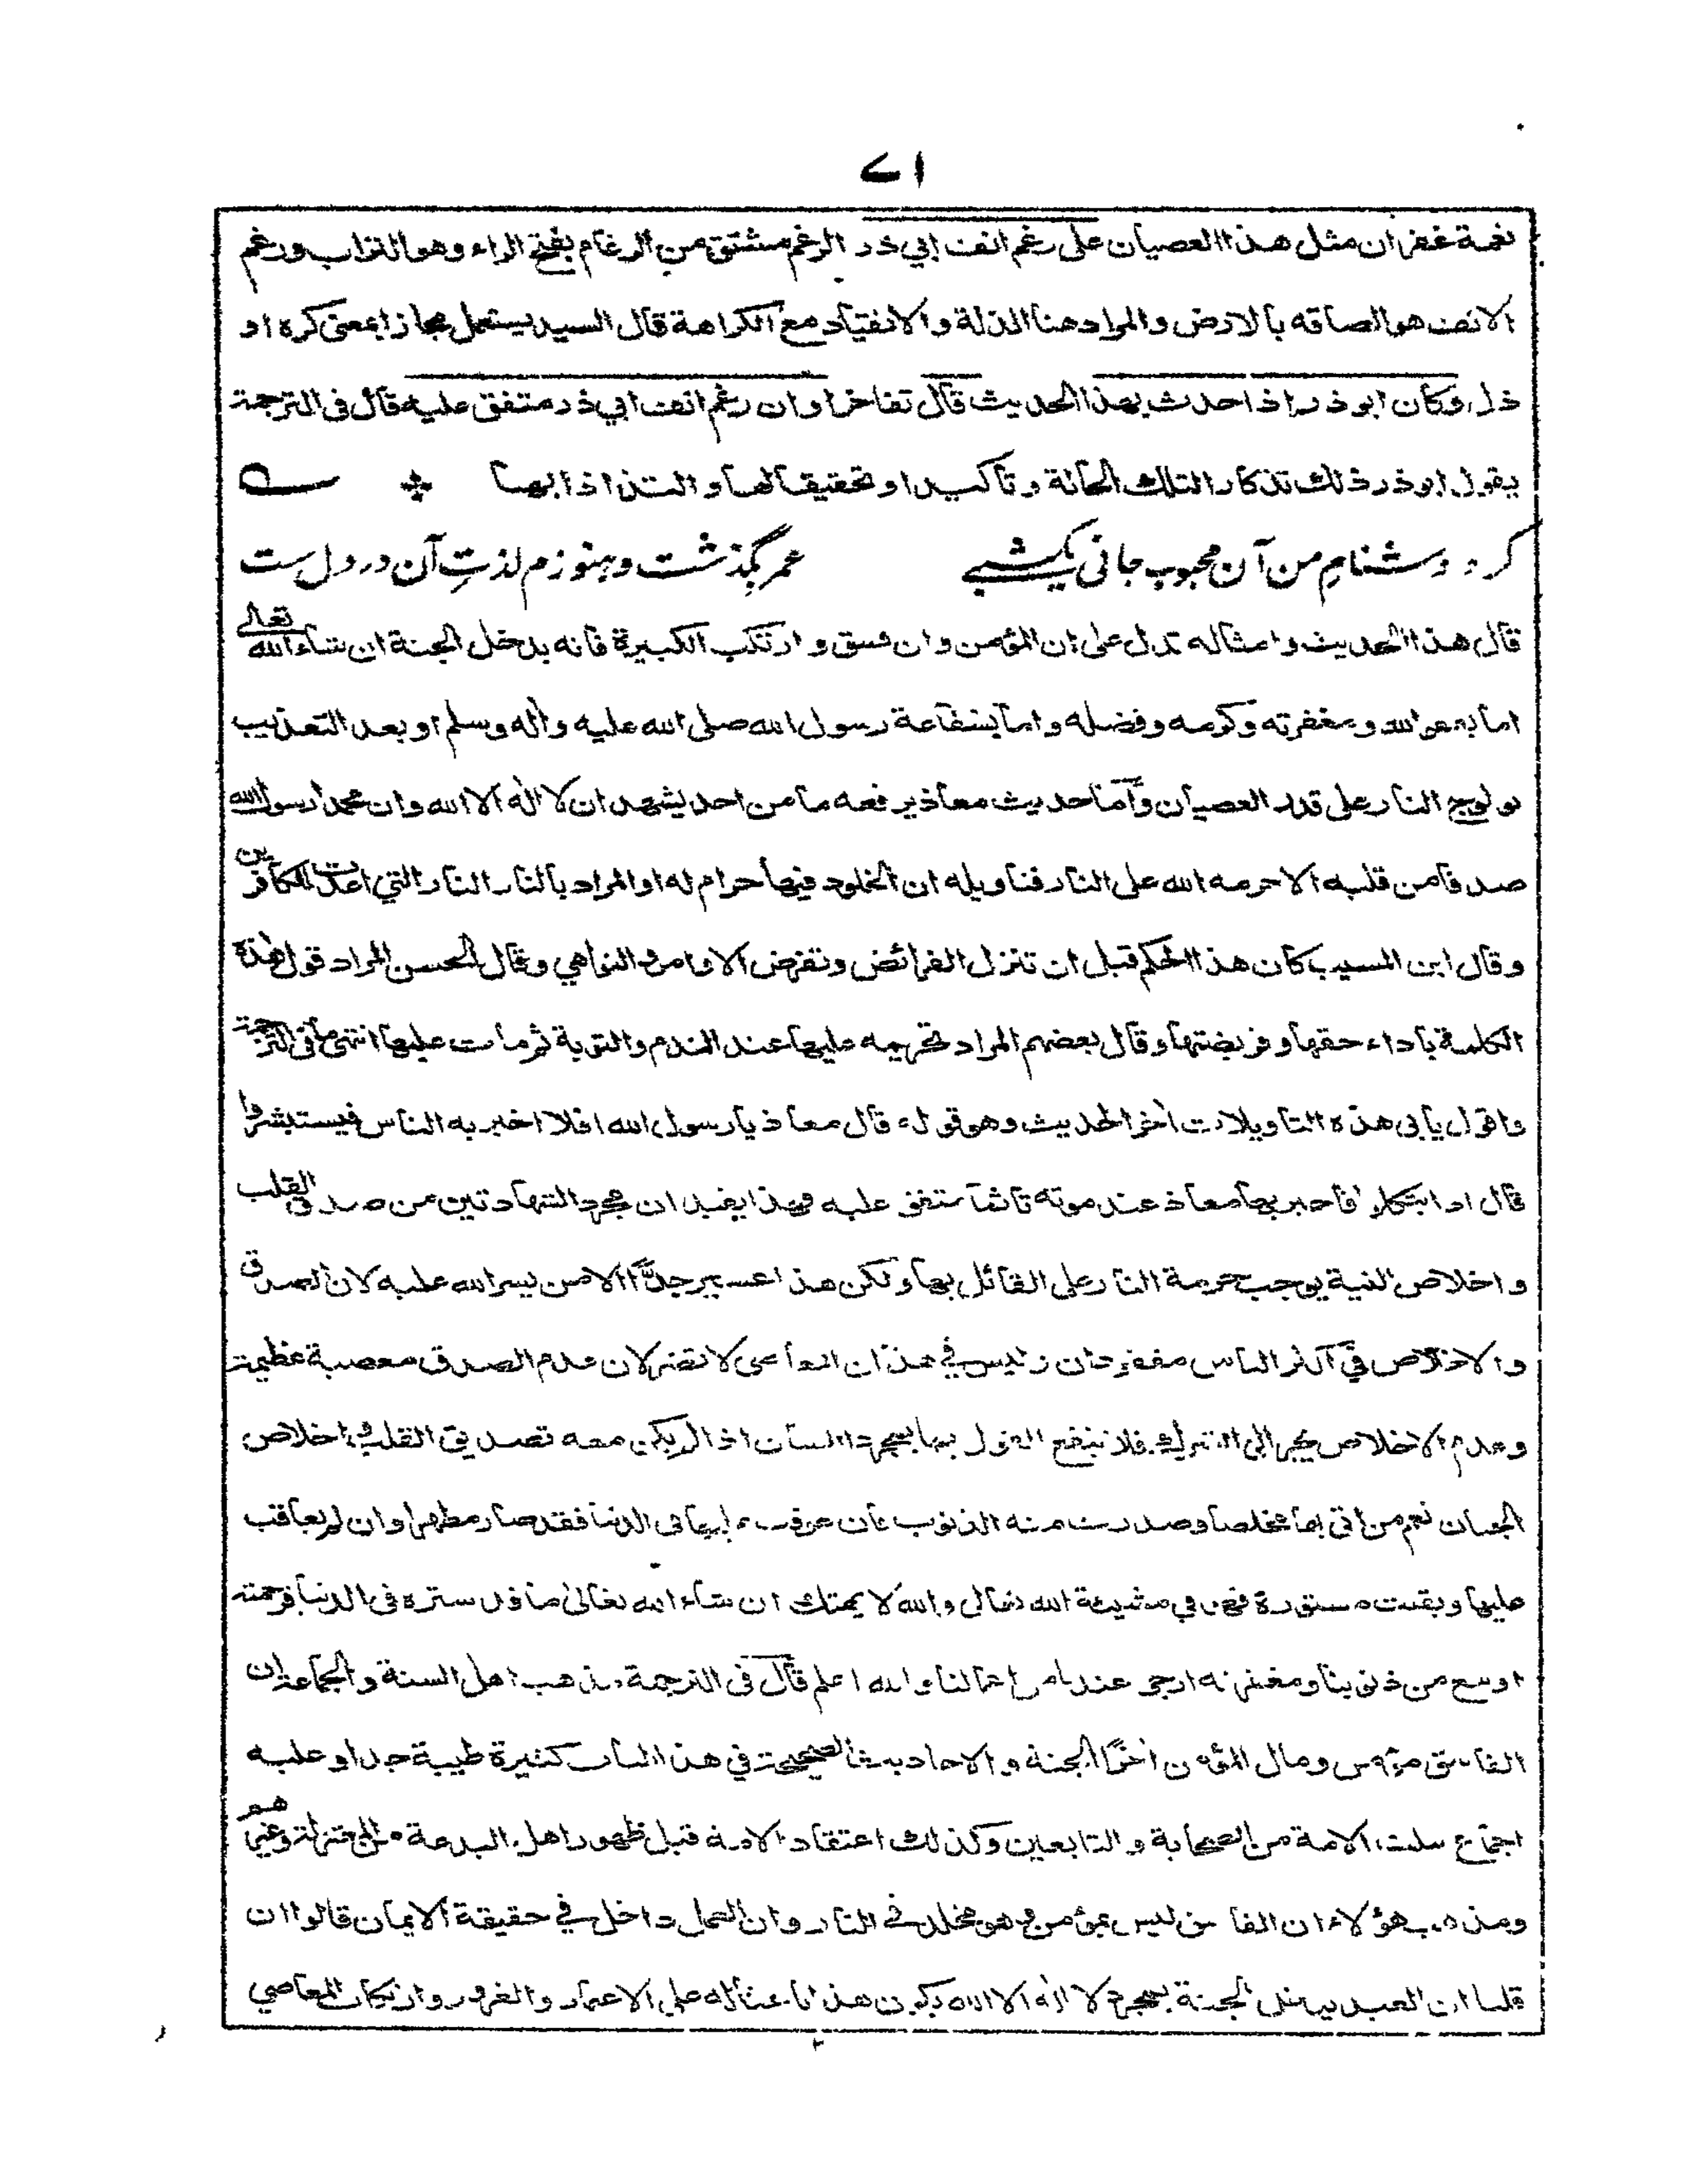 ۷۱
نعمة غفران مثل هذا العصيان على رغم انف ابي ذر الرغم مشتق من الرغام بفتح الراء وهو التراب ورغم
الانف هو الصاقه بالارض والمراد هنا الذلة والانقياد مع الكراهة قال السيد يستعمل مجازا بمعنى كره او
ذل وكان ابو ذر اذا حدث بهذا الحديث قال تفاخرا وان رغم انف ابي ذر متفق عليه قال في الترجمة
يقول ابو ذر ذلك تذكارا لتلك الحالة وتاكيدا وتحقيقا لها والتذاذا بها
كرد دشنام من آن محبوب جانى يكشبے عمر بگذشت وهنوزم لذتِ آن در دل ست
قال هذا الحديث وامثاله تدل على ان المؤمن وان فسق وارتكب الكبيرة فانه يدخل الجنة ان شاء الله تعالى
اما بعفو الله ومغفرته وكرمه وفضله واما بشفاعة رسول الله صلى الله عليه واله وسلم او بعد التعذيب
بولوج النار على قدر العصيان وأما حديث معاذ يرفعه ما من احد يشهد ان لا اله الا الله وان محمدا رسول الله
صدقا من قلبه الا حرمه الله على النار فتاويله ان الخلود فيها حرام له او المراد بالنار النار التي اعدت للكافرين
وقال ابن المسيب كان هذا الحكم قبل ان تنزل الفرائض وتفرض الاوامر والنواهي وقال الحسن المراد قول هذه
الكلمة باداء حقها وفريضتها وقال بعضهم المراد تحريمه عليها عند الندم والتوبة ثم مات عليها انتهى ما في الترجمة
واقول يابى هذه التاويلات اخر الحديث وهو قوله قال معاذ يا رسول الله افلا اخبر به الناس فيستبشروا
قال اذا يتكلوا فاخبر بها معاذ عند موته تاثما متفق عليه وهذا يفيد ان مجرد الشهادتين من صدق القلب
واخلاص النية يوجب حرمة النار على القائل بها ولكن هذا عسير جدًّا الا من يسر الله عليه لان الصدق
والاخلاص في اكثر الناس مفقودان وليس في هذا ان المعاصى لا تضر لان عدم الصدق معصية عظيمة
وعدم الاخلاص يجر الى الشرك فلا ينفع القول بها بمجرد اللسان اذا لم يكن معه تصديق القلب واخلاص
الجنان نعم من اتى بها مخلصا وصدرت منه الذنوب فان عوقب بها في الدنيا فقد صار مطهرا وان لم يعاقب
عليها وبقيت مستورة فهى في مشيئة الله تعالى والله لا يهتك ان شاء الله تعالى ما قد ستره في الدنيا فرحمته
اوسع من ذنوبنا ومغفرته ارجى عندنا من اعمالنا والله اعلم قال في الترجمة مذهب اهل السنة والجماعة ان
الفاسق مؤمن ومال المؤمن اخرًا الجنة والاحاديث الصحيحة في هذا الباب كثيرة طيبة جدا وعليه
اجماع سلف الامة من الصحابة والتابعين وكذلك اعتقاد الامة قبل ظهور اهل البدعة من المعتزلة وغيرهم
ومذهب هؤلاء ان الفاسق ليس بمؤمن وهو مخلد في النار وان العمل داخل في حقيقة الايمان قالوا ان
قلنا ان العبد يدخل الجنة بمجرد لا اله الا الله يكون هذا باعثا له على الاعتماد والغرور وارتكاب المعاصي